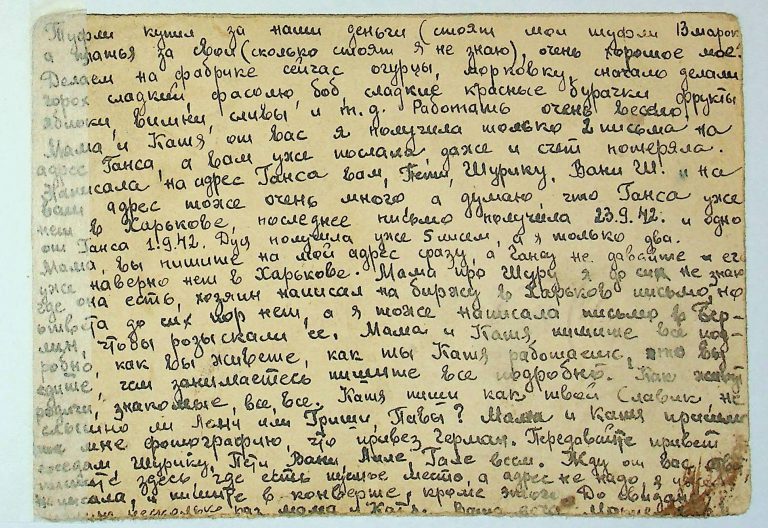 Туфли купил за наши деньги (стоят мои туфли 13 марок
а платья за свои (сколько стоят я не знаю), очень хорошое мое.
Делаем на фабрике сейчас огурцы, морковку, сначало делали
горох сладкий, фасолю, боб, сладкие красные бурачки фрукты
яблоки, вишни, сливы, и т.д. Работать очень весело.
Мама, и Катя, от вас я получила только 2 письма на
адрес Ганса, а вам уже послала, даже и счет потеряла.
Написала на адрес Ганса вам, Пети, Шурику, Вани Ш. и на
ваш адрес тоже очень много а думаю, что Ганса уже
нет в Харькове, последнее письмо получила 23.9.42. и одно
от Ганса 1.9.42. Дуся получила уже 5 писем, а я только два.
Мама, вы пишите на мой адрес сразу, а Гансу не давайте его
уже наверно нет в Харькове. Мама про Шуру я до сих не знаю
где она есть, хозяин написал на биржу в Харьков письмо, но
ответа до сих пор нет, а я тоже написала письмо в Бер-
лин, чтобы розыскали её. Мама и Катя пишите все под-
робно, как вы живете, как ты Катя работаешь, что вы
едите, чем занимаетесь пишите все подробно. Как живут
родичи, знакомые, все, все. Катя пиши как твой Славик не
слышно ли Лени или Гриши, Павы? Мама и Катя пришли
те мне фотографию, что привез Герман. Передавайте привет
соседам Шурику, Пети Вани Лиле, Гале всем. Жду от вас
здесь, где есть пустое место, а адрес не надо, я
и пишите в конверте, кроме этого. До свидания
несколько раз мама и Катя. Ваша